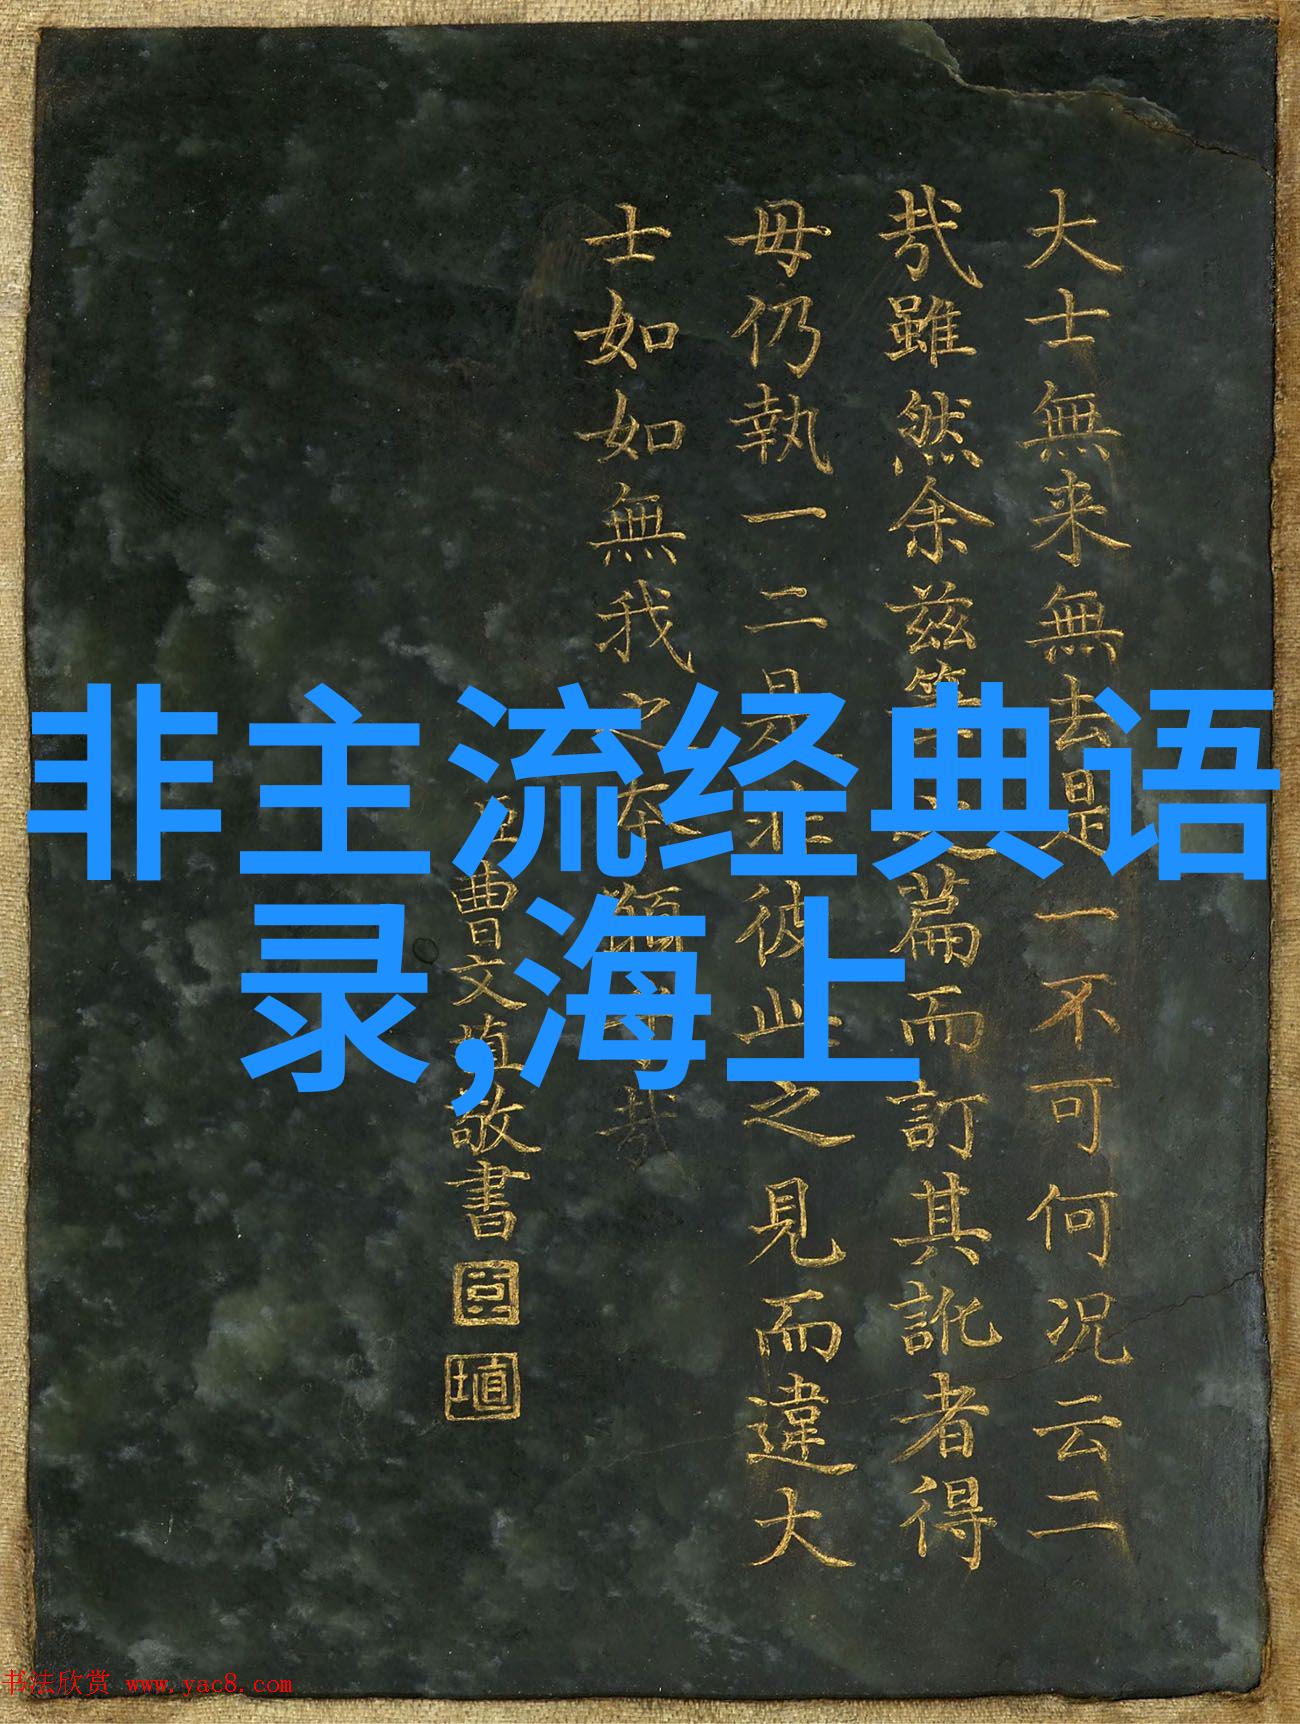 大士無来無去是一不可何況云二
哉雖然余兹篇而訂其訛者得
毋仍執一二是非彼此之見而違大
士如如無我之本願也哉
臣曹文埴敬書
非主流经典语
录,海上
书法欣赏 www.yac8.com